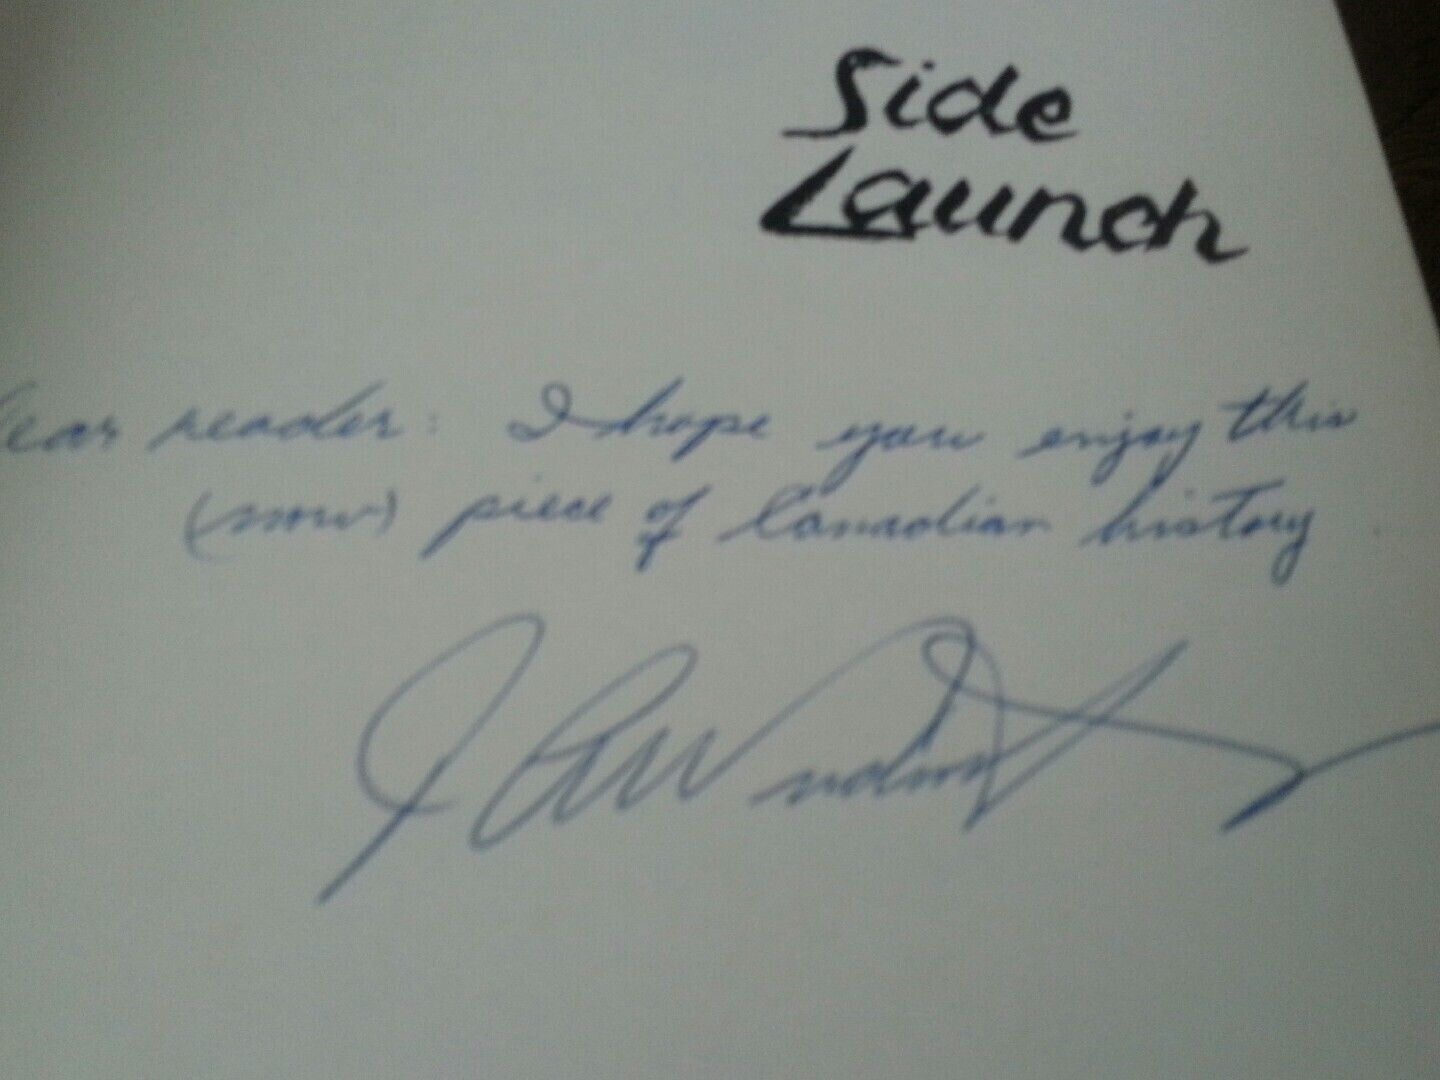 Side
Launch
Dear reader: I hope you enjoy this
(now) piece of Canadian history